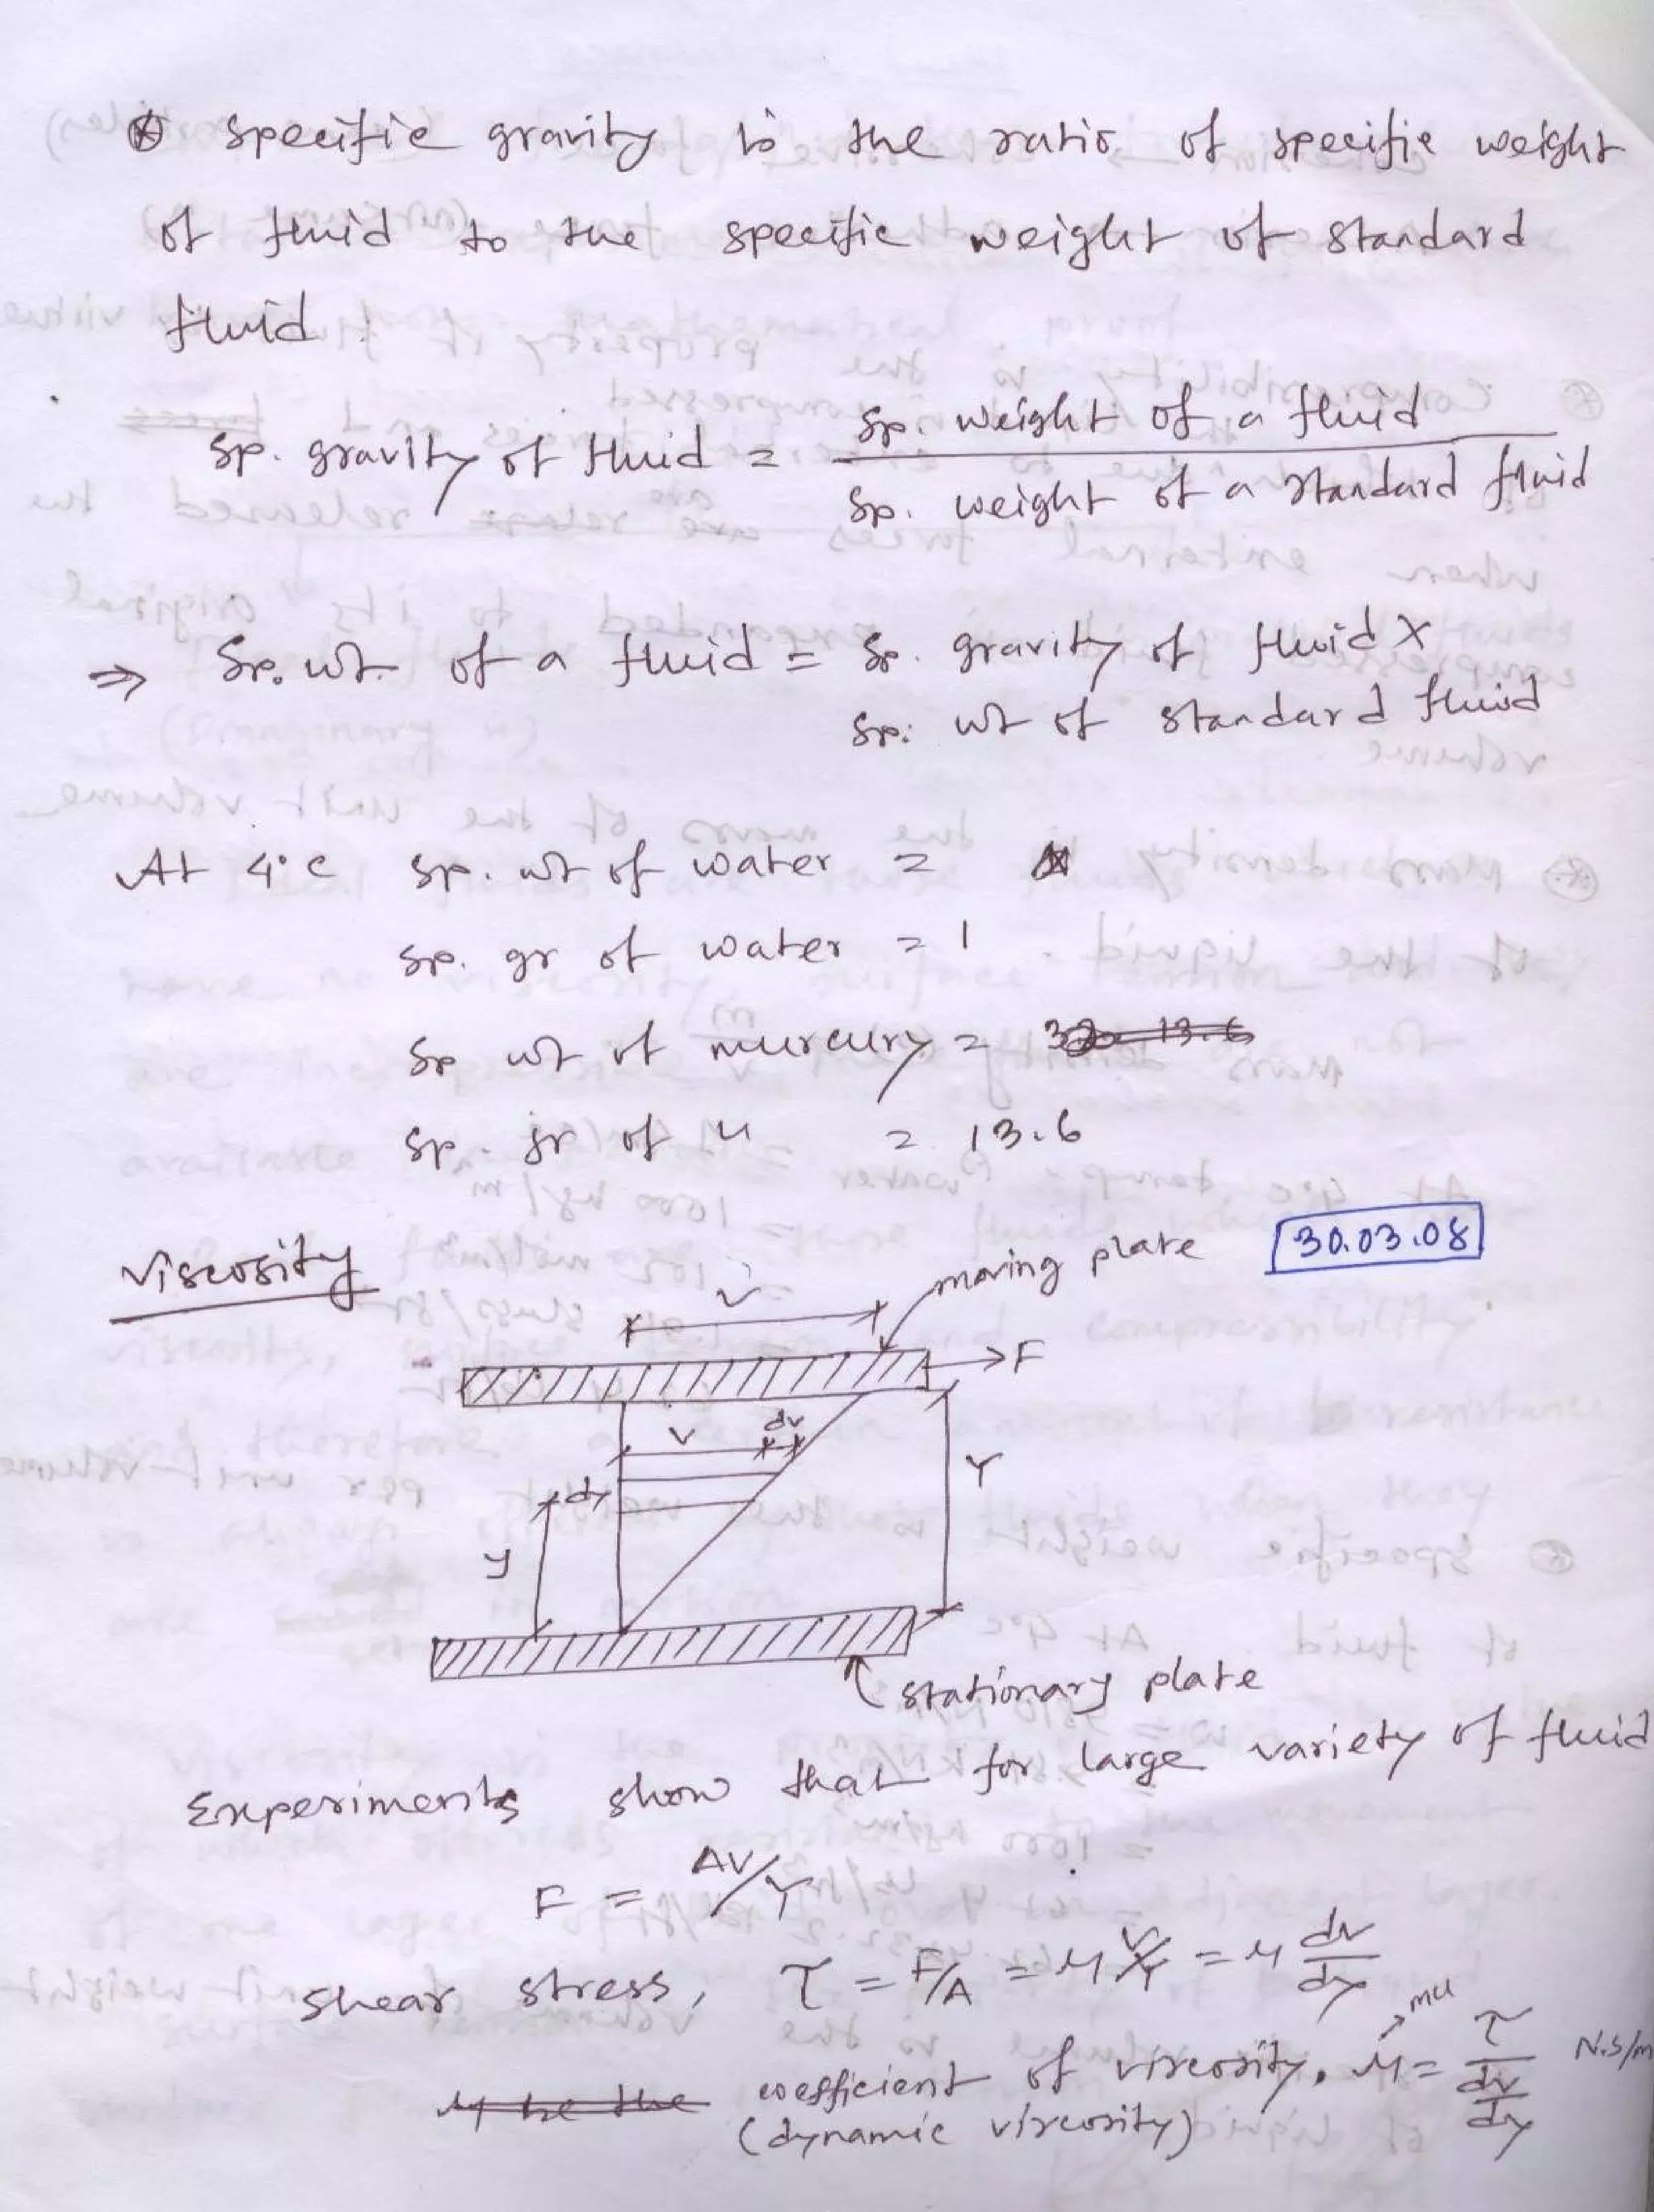 ⊛ specific gravity is the ratio of specific weight
of fluid to the specific weight of standard
fluid.
Sp. gravity of fluid = Sp. weight of a fluid / Sp. weight of a standard fluid
⇒ Sp. wt. of a fluid = Sp. gravity of fluid X
Sp. wt of standard fluid
At 4°C sp. wt of water =
sp. gr of water = 1
Sp wt of mercury = 13.6
Sp. gr of " = 13.6
Viscosity
30.03.08
moving plate
V
F
V dv
dy
Y
y
stationary plate
Experiments show that for large variety of fluid
F = AV/Y
Shear stress, τ = F/A = μ V/Y = μ dv/dy
mu
μ be the coefficient of viscosity, μ = τ / (dv/dy) N.S/m
(dynamic viscosity)